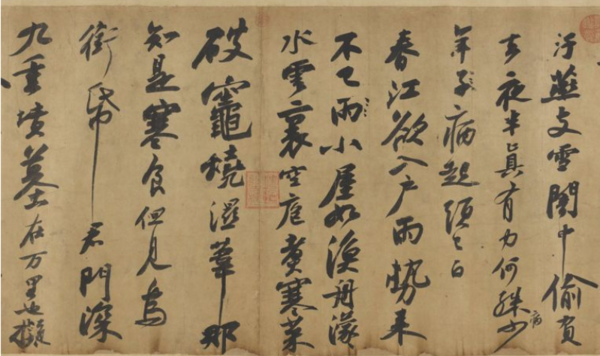 汙燕支雪闇中偷負
去夜半真有力何殊少病
年子病起須已白
春江欲入戶雨勢來
不已雨小屋如漁舟濛
水雲裏空庖煮寒菜
破竈燒濕葦那
知是寒食但見烏
銜帋君門深
九重墳墓在万里也擬